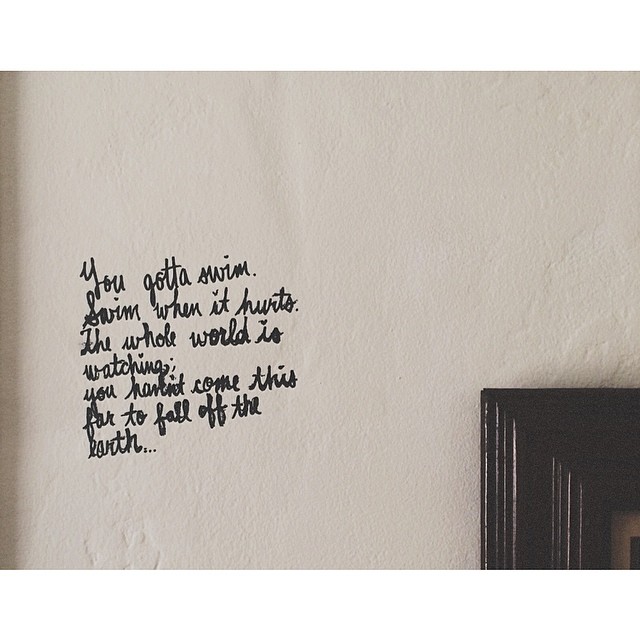 You gotta swim.
Swim when it hurts.
The whole world is
watching;
you haven't come this
far to fall off the
earth...